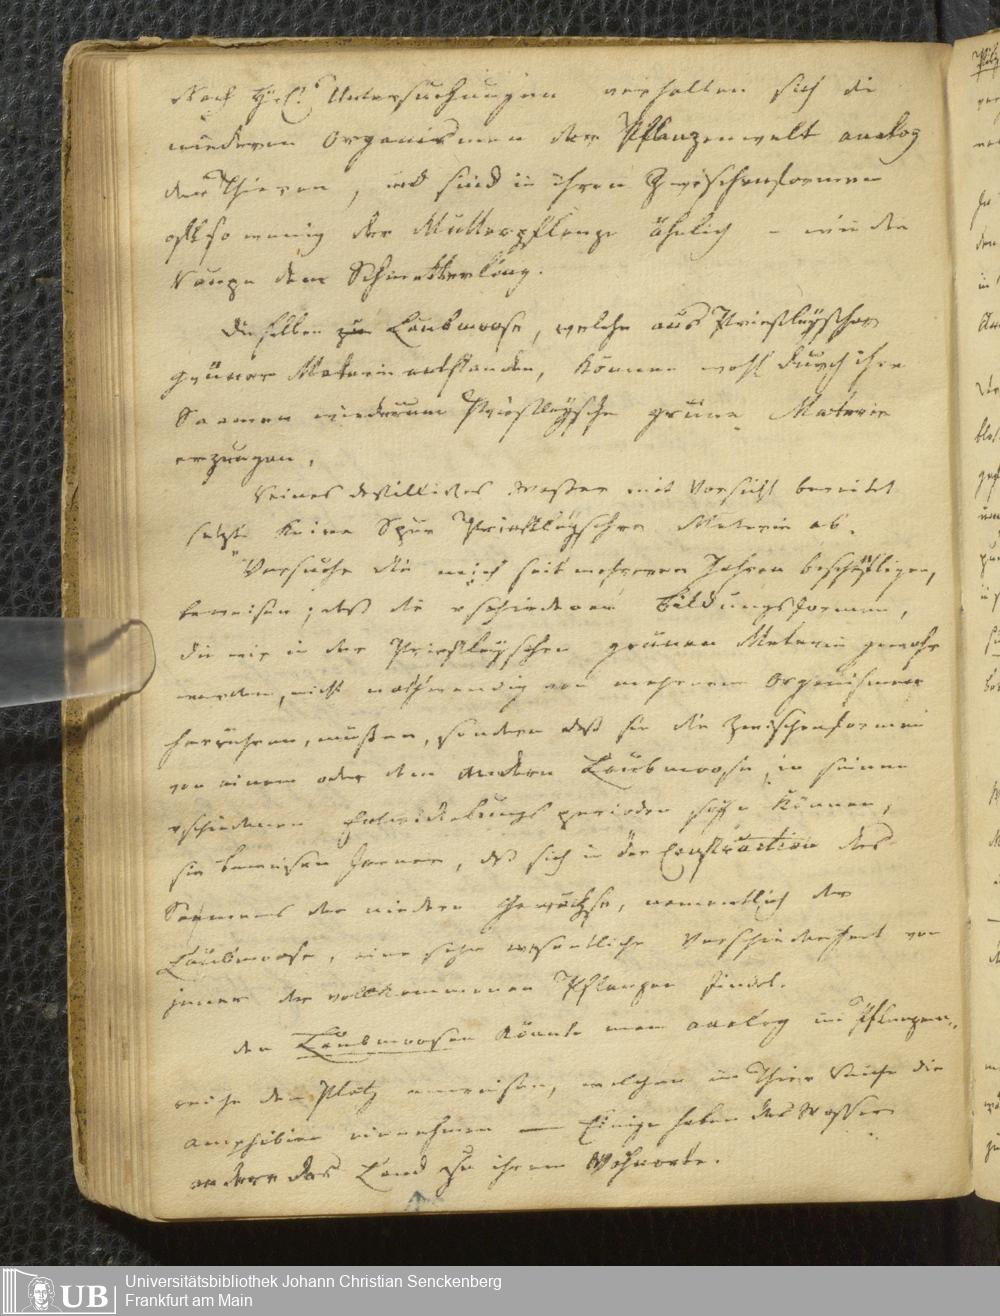 Nach Untersuchungen verhalten sich die
niederen Organismen der Pflanzenwelt analog
den Thieren, und sind in ihren Zwischenformen
oft so wenig der Mutterpflanze ähnlich – wie die
Raupe dem Schmetterling.
Dieselben Laubmoose, welche aus Priestleyscher
grüner Materie entstanden, können wohl durch ihre
Saamen wiederum Priestleysche grüne Materie
erzeugen.
Reines destillirtes Wasser mit Vorsicht bereitet
setzte keine Spur Priestleyscher Materie ab.
"Versuche die mich seit mehreren Jahren beschäftigen,
beweisen, daß die vschiedenen Bildungsformen,
die wir in der Priestleyschen grünen Materie gewahr
werden, nicht nothwendig von mehreren Organismen
herrühren, müßen, sondern daß sie die Zwischenformen
von einem oder dem andern Laubmoose in seinen
vschiedenen Entwickelungsperioden seyn können,
sie beweisen ferner, daß sich in der Construction des
Saamens der niedern Gewächse, namentlich der
Laubmoose, eine sehr wesentliche Verschiedenheit von
jener der vollkommenen Pflanzen findet.
den Laubmoosen könnte man analog im Pflanzen-
reiche den Platz anweisen, welchen im Thier Reiche die
Amphibien einnehmen — Einige haben das Wasser
andere das Land zu ihrem Wohnorte.
Universitätsbibliothek Johann Christian Senckenberg
Frankfurt am Main
UB